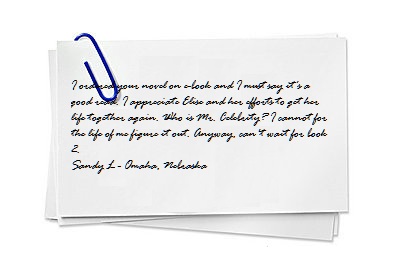 I ordered your novel on e-book and I must say it's a
good read. I appreciate Elise and her efforts to get her
life together again. Who is Mr. Celebrity? I cannot for
the life of me figure it out. Anyway, can't wait for book
2.
Sandy L - Omaha, Nebraska